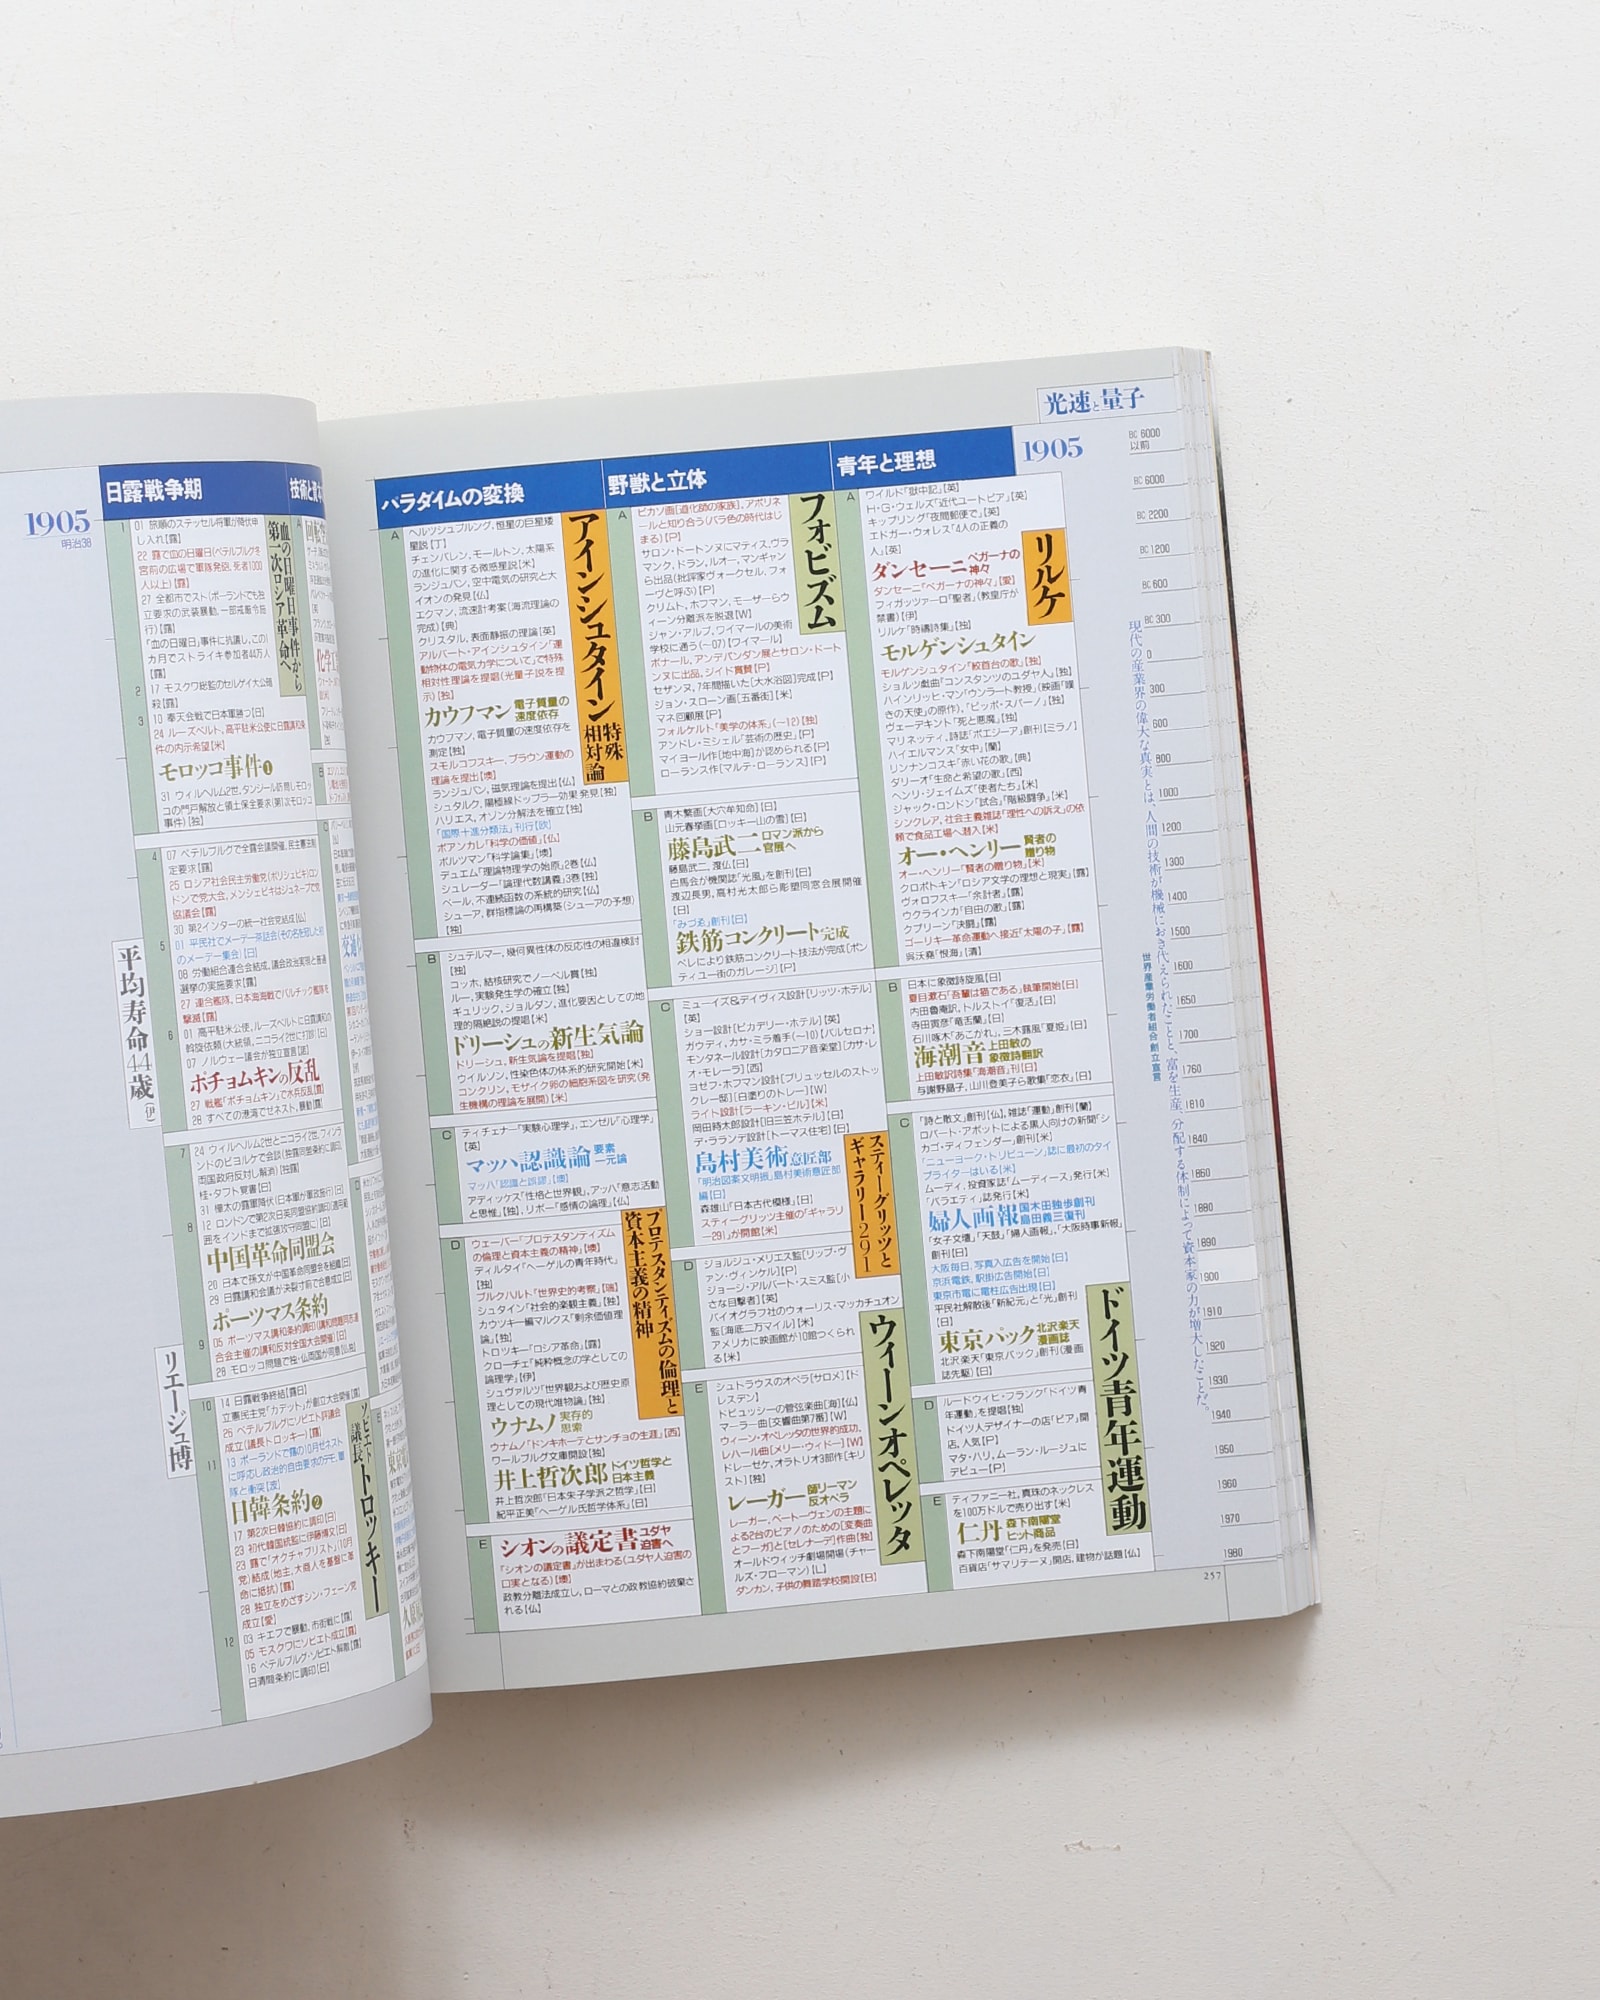 1905
明治38
日露戦争期
技術と資本
1
01 旅順のステッセル将軍が降伏申
し入れ【露】
22 露で血の日曜日(ペテルブルグ冬
宮前の広場で軍隊発砲, 死者1000
人以上)【露】
27 全都市でスト(ポーランドでも独
立要求の武装暴動, 一部戒厳令施
行)【露】
「血の日曜日」事件に抗議し, この1
カ月でストライキ参加者44万人
【露】
血の日曜日事件から
第一次ロシア革命へ
2
17 モスクワ総監のセルゲイ大公暗
殺【露】
3
10 奉天会戦で日本軍勝つ【日】
24 ルーズベルト, 高平駐米公使に日露講和条
件の内示希望【米】
モロッコ事件❶
31 ウィルヘルム2世, タンジール訪問しモロッ
コの門戸解放と領土保全要求(第1次モロッコ
事件)【独】
4
07 ペテルブルグで全露会議開催, 民主憲法制
定要求【露】
25 ロシア社会民主労働党(ボリシェビキロン
ドンで党大会, メンシェビキはジュネーブで党
協議会【露】
30 第2インターの統一社会党結成【仏】
5
01 平民社でメーデー茶話会(その名を冠した初
のメーデー集会)【日】
08 労働組合連合会結成, 議会政治実現と普通
選挙の実施要求【露】
27 連合艦隊, 日本海海戦でバルチック艦隊を
撃滅【露】
6
01 高平駐米公使, ルーズベルトに日露講和の
斡旋依頼(大統領, ニコライ2世に打診)【日】
07 ノルウェー議会が独立宣言【諾】
ポチョムキンの反乱
27 戦艦「ポチョムキン」で水兵反乱【露】
28 すべての港湾でゼネスト, 暴動【露】
平均寿命44歳(伊)
7
24 ウィルヘルム2世とニコライ2世, フィンラ
ンドのビヨルケで会談(独露同盟条約に調印
両国政府反対し解消)【独露】
桂・タフト覚書【日】
31 樺太の露軍降伏(日本軍が軍政施行)【日】
8
12 ロンドンで第2次日英同盟協約調印(適用範
囲をインドまで拡張攻守同盟に)【日】
中国革命同盟会
20 日本で孫文が中国革命同盟会を組織【日】
29 日露講和会議が決裂寸前で合意成立【日】
ポーツマス条約
9
05 ポーツマス講和条約調印(講和問題同志連
合会主催の講和反対全国大会開催)【日】
28 モロッコ問題で独・仏両国が同意【仏独】
リエージュ博
10
14 日露戦争終結【露日】
立憲民主党「カデット」が創立大会開催【露】
26 ペテルブルグにソビエト評議会
成立(議長トロツキー)【露】
11
13 ポーランドで露の10月ゼネスト
に呼応し政治的自由要求のデモ, 軍
隊と衝突【波】
ソビエト議長トロツキー
日韓条約❷
17 第2次日韓協約に調印【日】
23 初代韓国統監に伊藤博文【日】
23 露で「オクチャブリスト」(10月
党)結成(地主, 大商人を基盤に革
命に抵抗)【露】
28 独立をめざすシン・フェーン党
成立【愛】
12
03 キエフで暴動, 市街戦に【露】
05 モスクワにソビエト成立【露】
16 ペテルブルグ・ソビエト解散【露】
日清間条約に調印【日】
光速と量子
1905
パラダイムの変換
A
ヘルツシュプルング, 恒星の巨星矮
星説【丁】
チェンバレン, モールトン, 太陽系
の進化に関する微惑星説【米】
ランジュバン, 空中電気の研究と大
イオンの発見【仏】
エクマン, 流速計考案(海流理論の
完成)【典】
クリスタル, 表面静振の理論【英】
アルバート・アインシュタイン「運
動物体の電気力学について」で特殊
相対性理論を提唱(光量子説を提
示)【独】
アインシュタイン 特殊相対論
カウフマン 電子質量の速度依存
カウフマン, 電子質量の速度依存を
測定【独】
スモルコフスキー, ブラウン運動の
理論を提出【墺】
ランジュバン, 磁気理論を提出【仏】
シュタルク, 陽極線ドップラー効果発見【独】
ハリエス, オゾン分解法を確立【独】
「国際十進分類法」刊行【欧】
ポアンカレ「科学の価値」【仏】
ボルツマン「科学論集」【墺】
デュエム「理論物理学の始原」2巻【仏】
シュレーダー「論理代数講義」3巻【独】
ベール, 不連続函数の系統的研究【仏】
シューア, 群指標論の再構築(シューアの予想)
【独】
B
シュテルマー, 幾何異性体の反応性の相違検討
【独】
コッホ, 結核研究でノーベル賞【独】
ルー, 実験発生学の確立【独】
ギュリック, ジョルダン, 進化要因としての地
理的隔絶説の提唱【米】
ドリーシュの新生気論
ドリーシュ, 新生気論を提唱【独】
ウイルソン, 性染色体の体系的研究開始【米】
コンクリン, モザイク卵の細胞系図を研究(発
生機構の理論を展開)【米】
C
ティチェナー「実験心理学」, エンゼル「心理学」
【英】
マッハ認識論 要素一元論
マッハ「認識と誤謬」【墺】
アディックス「性格と世界観」, アッハ「意志活動
と思惟」【独】, リボー「感情の論理」【仏】
D
ウェーバー「プロテスタンティズム
の倫理と資本主義の精神」【墺】
ディルタイ「ヘーゲルの青年時代」
【独】
ブルクハルト「世界史的考察」【瑞】
シュタイン「社会的楽観主義」【独】
カウツキー編マルクス「剰余価値理
論」【独】
トロツキー「ロシア革命」【露】
クローチェ「純粋概念の学としての
論理学」【伊】
シュヴァルツ「世界観および歴史原
理としての現代唯物論」【独】
プロテスタンティズムの倫理と
資本主義の精神
ウナムノ 実存的思索
ウナムノ「ドンキホーテとサンチョの生涯」【西】
ワールブルグ文庫開設【独】
井上哲次郎 ドイツ哲学と日本主義
井上哲次郎「日本朱子学派之哲学」【日】
紀平正美「ヘーゲル氏哲学体系」【日】
E
シオンの議定書 ユダヤ迫害へ
「シオンの議定書」が出まわる(ユダヤ人迫害の
口実となる)【墺】
政教分離法成立し, ローマとの政教協約破棄さ
れる【仏】
野獣と立体
A
ピカソ画[道化師の家族], アポリネ
ールと知り合う(バラ色の時代はじ
まる)【P】
サロン・ドートンヌにマティス, ヴラ
マンク, ドラン, ルオー, マンギャン
ら出品(批評家ヴォークセル, フォ
ーヴと呼ぶ)【P】
クリムト, ホフマン, モーザーらウ
ィーン分離派を脱退【W】
ジャン・アルプ, ワイマールの美術
学校に通う(~07)【ワイマール】
ボナール, アンデパンダン展とサロン・ドート
ンヌに出品, ジイド賞賛【P】
セザンヌ, 7年間描いた[大水浴図]完成【P】
ジョン・スローン画[五番街]【米】
マネ回顧展【P】
フォルケルト「美学の体系」(~12)【独】
アンドレ・ミシェル「芸術の歴史」【P】
マイヨール作[地中海]が認められる【P】
ローランス作[マルテ・ローランス]【P】
フォビズム
B
青木繁画[大穴牟知命]【日】
山元春挙画[ロッキー山の雪]【日】
藤島武二 ロマン派から官展へ
藤島武二, 渡仏【日】
白馬会が機関誌「光風」を創刊【日】
渡辺長男, 高村光太郎ら彫塑同窓会展開催
【日】
「みづゑ」創刊【日】
鉄筋コンクリート完成
ペレにより鉄筋コンクリート技法が完成[ポン
ティユー街のガレージ]【P】
C
ミューイズ&デイヴィス設計[リッツ・ホテル]
【英】
ショー設計[ピカデリー・ホテル]【英】
ガウディ, カサ・ミラ着手(~10)【バルセロナ】
モンタネール設計[カタロニア音楽堂]【カサ・レ
オ・モレーラ]【西】
ヨセフ・ホフマン設計[ブリュッセルのストッ
クレー邸]【白塗りのトレー]【W】
ライト設計[ラーキン・ビル]【米】
岡田時太郎設計[旧三笠ホテル]【日】
デ・ラランデ設計[トーマス住宅]【日】
島村美術意匠部
「明治図案文明振」, 島村美術意匠部
編【日】
森雄山「日本古代模様」【日】
スティーグリッツ主催の「ギャラリ
ー291」が開館【米】
スティーグリッツと
ギャラリー291
D
ジョルジュ・メリエス監[リップ・ヴ
ァン・ヴィンケル]【P】
ジョージ・アルバート・スミス監[小
さな目撃者]【英】
バイオグラフ社のウォーリス・マッカチュオン
監[海底二万マイル]【米】
アメリカに映画館が10館つくられ
る【米】
E
シュトラウスのオペラ[サロメ]【ド
レスデン】
ドビュッシーの管弦楽曲[海]【仏】
マーラー曲[交響曲第7番]【W】
ウィーン・オペレッタの世界的成功,
レハール曲[メリー・ウィドー]【W】
ドレーゼケ, オラトリオ3部作[キリ
スト]【独】
ウィーンオペレッタ
レーガー 師リーマン反オペラ
レーガー, ベートーヴェンの主題に
よる2台のピアノのための[変奏曲
とフーガ]と[セレナーデ]作曲【独】
オールドウィッチ劇場開場(チャー
ルズ・フローマン)【L】
ダンカン, 子供の舞踏学校開設【日】
青年と理想
A
ワイルド「獄中記」【英】
H・G・ウェルズ「近代ユートピア」【英】
キップリング「夜間郵便で」【英】
エドガー・ウォレス「4人の正義の
人」【英】
ダンセーニ ペガーナの神々
ダンセーニ「ペガーナの神々」【愛】
フィガッツァーロ「聖者」(教皇庁が
禁書)【伊】
リルケ「時禱詩集」【独】
リルケ
モルゲンシュタイン
モルゲンシュタイン「絞首台の歌」【独】
ショルツ戯曲「コンスタンツのユダヤ人」【独】
ハインリッヒ・マン「ウンラート教授」(映画「嘆
きの天使」の原作), 「ピッポ・スパーノ」【独】
ヴェーアキント「死と悪魔」【独】
マリネッティ, 詩誌「ポエジーア」創刊【ミラノ】
ハイエルマンス「女中」【蘭】
リンナンコスキ「赤い花の歌」【典】
ダリーオ「生命と希望の歌」【西】
ヘンリ・ジェイムズ「使者たち」【米】
ジャック・ロンドン「試合」「階級闘争」【米】
シンクレア, 社会主義雑誌「理性への訴え」の依
頼で食品工場へ潜入【米】
オー・ヘンリー 賢者の贈り物
オー・ヘンリー「賢者の贈り物」【米】
クロポトキン「ロシア文学の理想と現実」【露】
ヴォロフスキー「余計者」【露】
ウクラインカ「自由の歌」【露】
クプリーン「決闘」【露】
ゴーリキー革命運動へ接近「太陽の子」【露】
呉沃堯「恨海」【清】
B
日本に象徴詩旋風【日】
夏目漱石「吾輩は猫である」執筆開始【日】
内田魯庵訳, トルストイ「復活」【日】
寺田寅彦「竜舌蘭」【日】
石川啄木「あこがれ」, 三木露風「夏姫」【日】
海潮音 上田敏の象徴詩翻訳
上田敏訳詩集「海潮音」刊【日】
与謝野晶子, 山川登美子ら歌集「恋衣」【日】
C
「詩と散文」創刊【仏】, 雑誌「運動」創刊【蘭】
ロバート・アボットによる黒人向けの新聞「シ
カゴ・ディフェンダー」創刊【米】
「ニューヨーク・トリビューン」誌に最初のタイ
プライターはいる【米】
ムーディ, 投資家誌「ムーディース」発行【米】
「バラエティ」誌発行【米】
婦人画報 国木田独歩創刊島田義三復刊
「女子文壇」「天鼓」「婦人画報」, 「大阪時事新報」
創刊【日】
大阪毎日, 写真入広告を開始【日】
京浜電鉄, 駅掛広告開始【日】
東京市電に電柱広告出現【日】
平民社解散後「新紀元」と「光」創刊
【日】
東京パック 北沢楽天漫画誌
北沢楽天「東京パック」創刊(漫画
誌先駆)【日】
D
ルードウィヒ・フランク「ドイツ青
年運動」を提唱【独】
ドイツ人デザイナーの店「ピア」開
店, 人気【P】
マタ・ハリ, ムーラン・ルージュに
デビュー【P】
ドイツ青年運動
E
ティファニー社, 真珠のネックレス
を100万ドルで売り出す【米】
仁丹 森下南陽堂ヒット商品
森下南陽堂「仁丹」を発売【日】
百貨店「サマリテーヌ」開店, 建物が話題【仏】
現代の産業界の偉大な真実とは、人間の技術が機械におき代えられたことと、富を生産、分配する体制によって資本家の力が増大したことだ。
世界産業労働者組合創立宣言
BC 6000
以前
BC 6000
BC 2200
BC 1200
BC 600
BC 300
0
300
600
800
1000
1200
1300
1400
1500
1600
1650
1700
1760
1810
1840
1860
1880
1890
1900
1910
1920
1930
1940
1950
1960
1970
1980
257